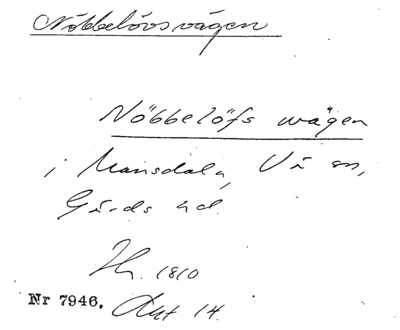 Nöbbelövsvägen
Nöbbelöfs wägen
i Mansdala, Vä sn,
Gärds hd.
1810
Nr 7946. Akt 14.